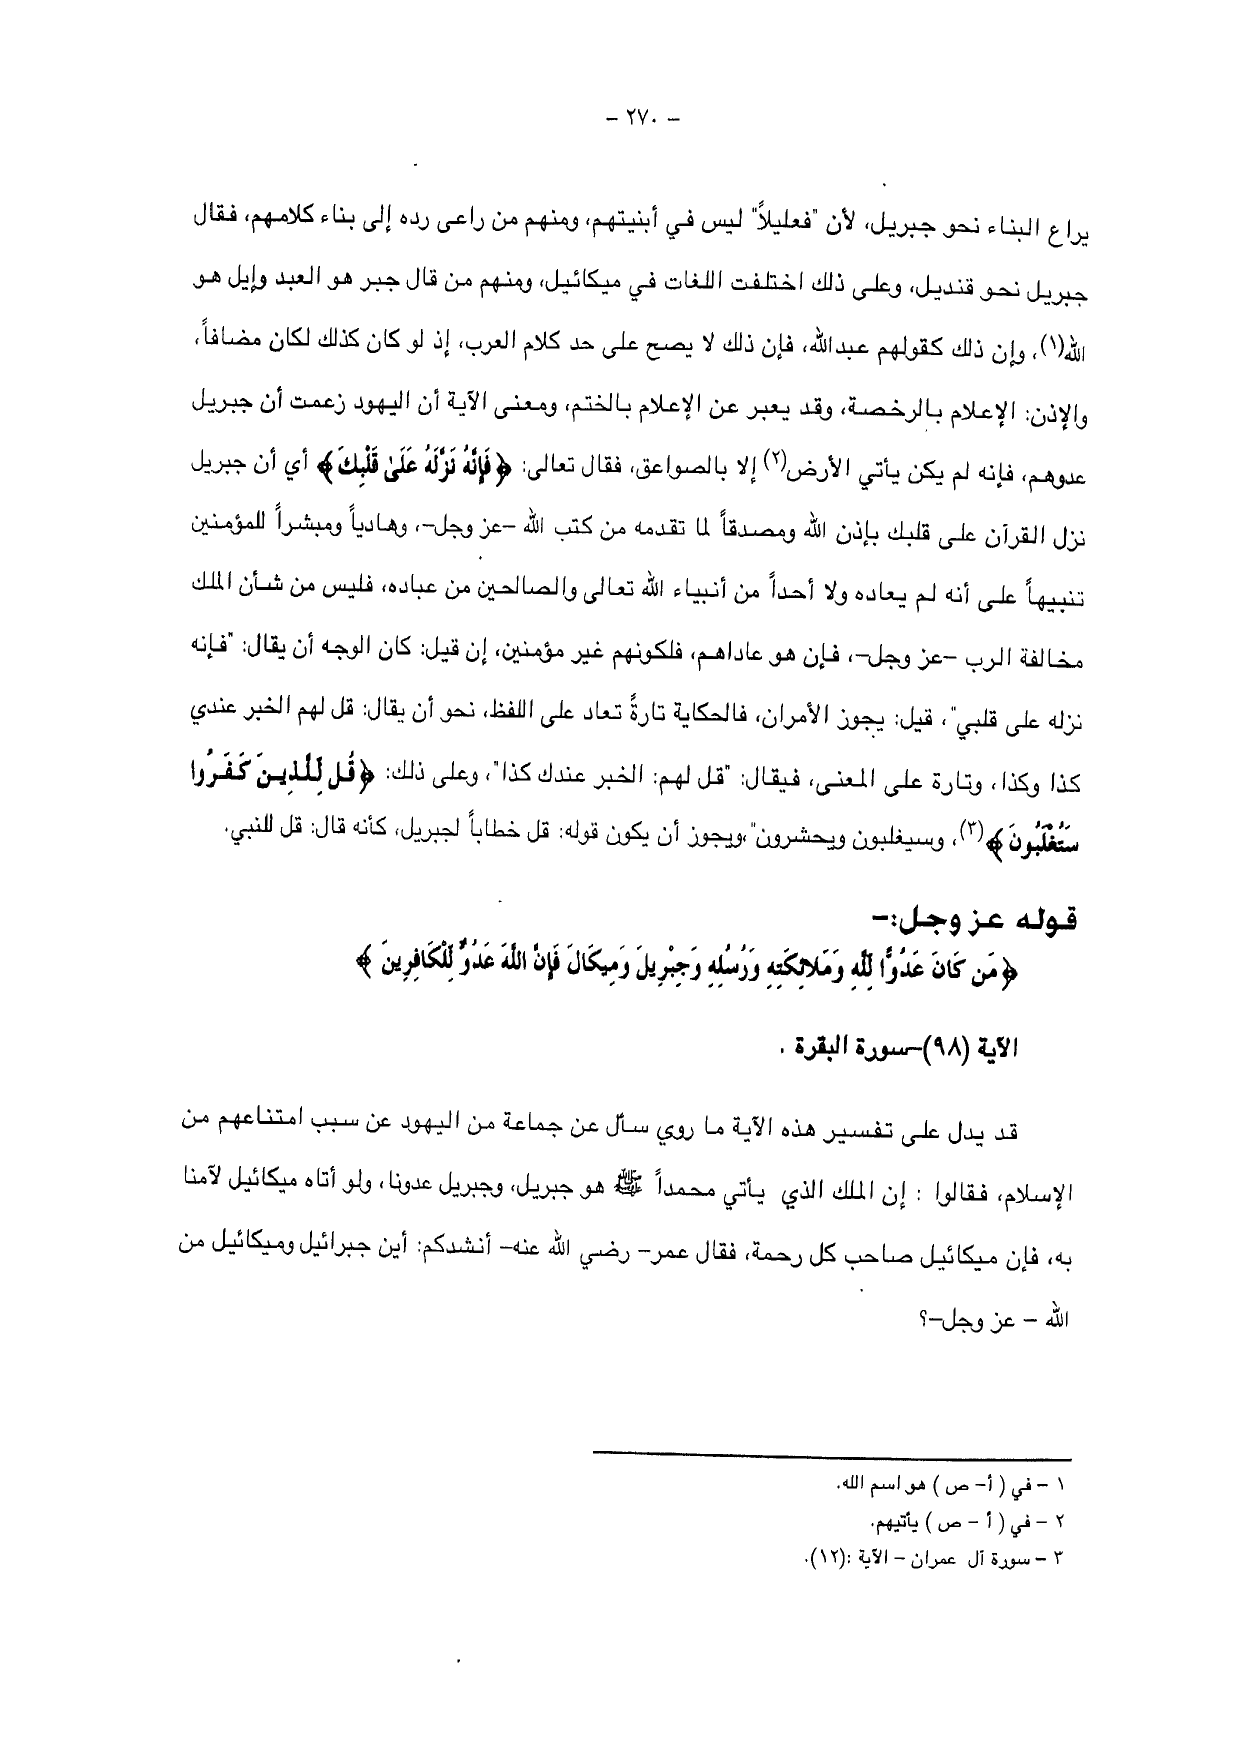 – ٢٧٠ –
يراع البناء نحو جبريل، لأن "فعليلاً" ليس في أبنيتهم، ومنهم من راعى رده إلى بناء كلامهم، فقال
جبريل نحو قنديل، وعلى ذلك اختلفت اللغات في ميكائيل، ومنهم من قال جبر هو العبد وإيل هو
الله(١)، وإن ذلك كقولهم عبدالله، فإن ذلك لا يصح على حد كلام العرب، إذ لو كان كذلك لكان مضافاً،
والإذن: الإعلام بالرخصة، وقد يعبر عن الإعلام بالختم، ومعنى الآية أن اليهود زعمت أن جبريل
عدوهم، فإنه لم يكن يأتي الأرض(٢) إلا بالصواعق، فقال تعالى: ﴿فَإِنَّهُ نَزَّلَهُ عَلَىٰ قَلْبِكَ﴾ أي أن جبريل
نزل القرآن على قلبك بإذن الله ومصدقاً لما تقدمه من كتب الله –عز وجل–، وهادياً ومبشراً للمؤمنين
تنبيهاً على أنه لم يعاده ولا أحداً من أنبياء الله تعالى والصالحين من عباده، فليس من شأن الملك
مخالفة الرب –عز وجل–، فإن هو عاداهم، فلكونهم غير مؤمنين، إن قيل: كان الوجه أن يقال: "فإنه
نزله على قلبي"، قيل: يجوز الأمران، فالحكاية تارةً تعاد على اللفظ، نحو أن يقال: قل لهم الخبر عندي
كذا وكذا، وتارة على المعنى، فيقال: "قل لهم: الخبر عندك كذا"، وعلى ذلك: ﴿قُل لِّلَّذِينَ كَفَرُوا
سَتُغْلَبُونَ﴾(٣)، وسيغلبون ويحشرون"،ويجوز أن يكون قوله: قل خطاباً لجبريل، كأنه قال: قل للنبي.
قوله عز وجل:–
﴿مَن كَانَ عَدُوًّا لِلَّهِ وَمَلَائِكَتِهِ وَرُسُلِهِ وَجِبْرِيلَ وَمِيكَالَ فَإِنَّ اللَّهَ عَدُوٌّ لِّلْكَافِرِينَ﴾
الآية (٩٨)–سورة البقرة .
قد يدل على تفسير هذه الآية ما روي سأل عن جماعة من اليهود عن سبب امتناعهم من
الإسلام، فقالوا : إن الملك الذي يأتي محمداً ﷺ هو جبريل، وجبريل عدونا، ولو أتاه ميكائيل لآمنا
به، فإن ميكائيل صاحب كل رحمة، فقال عمر– رضي الله عنه– أنشدكم: أين جبرائيل وميكائيل من
الله – عز وجل–؟
١ – في ( أ– ص ) هو اسم الله.
٢ – في ( أ – ص ) يأتيهم.
٣ – سورة آل عمران – الآية :(١٢).